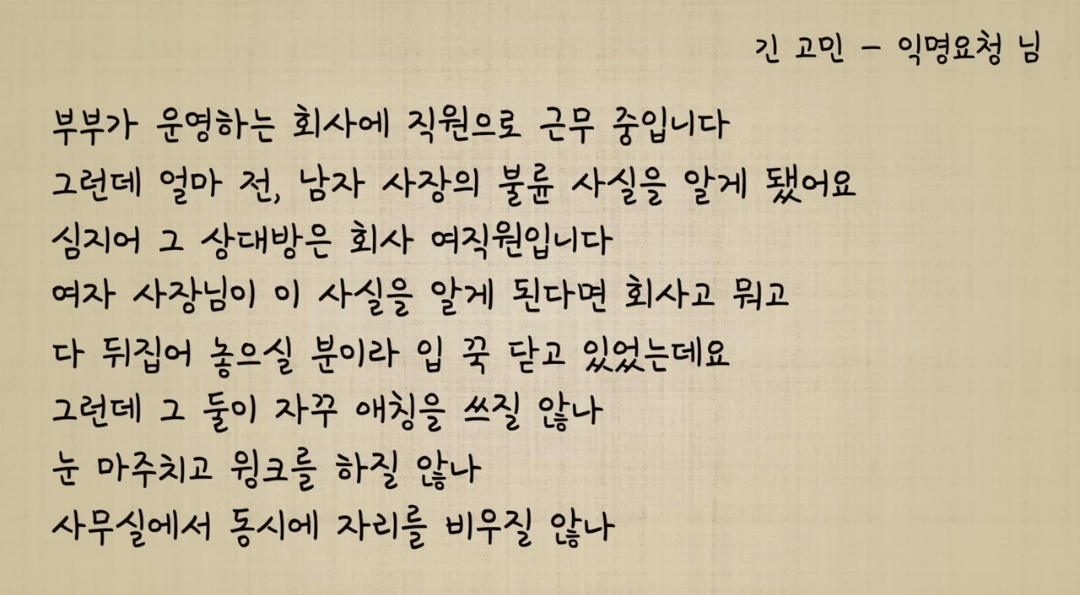 긴 고민 - 익명요청 님
부부가 운영하는 회사에 직원으로 근무 중입니다
그런데 얼마 전, 남자 사장의 불륜 사실을 알게 됐어요
심지어 그 상대방은 회사 여직원입니다
여자 사장님이 이 사실을 알게 된다면 회사고 뭐고
다 뒤집어 놓으실 분이라 입 꾹 닫고 있었는데요
그런데 그 둘이 자꾸 애칭을 쓰질 않나
눈 마주치고 윙크를 하질 않나
사무실에서 동시에 자리를 비우질 않나